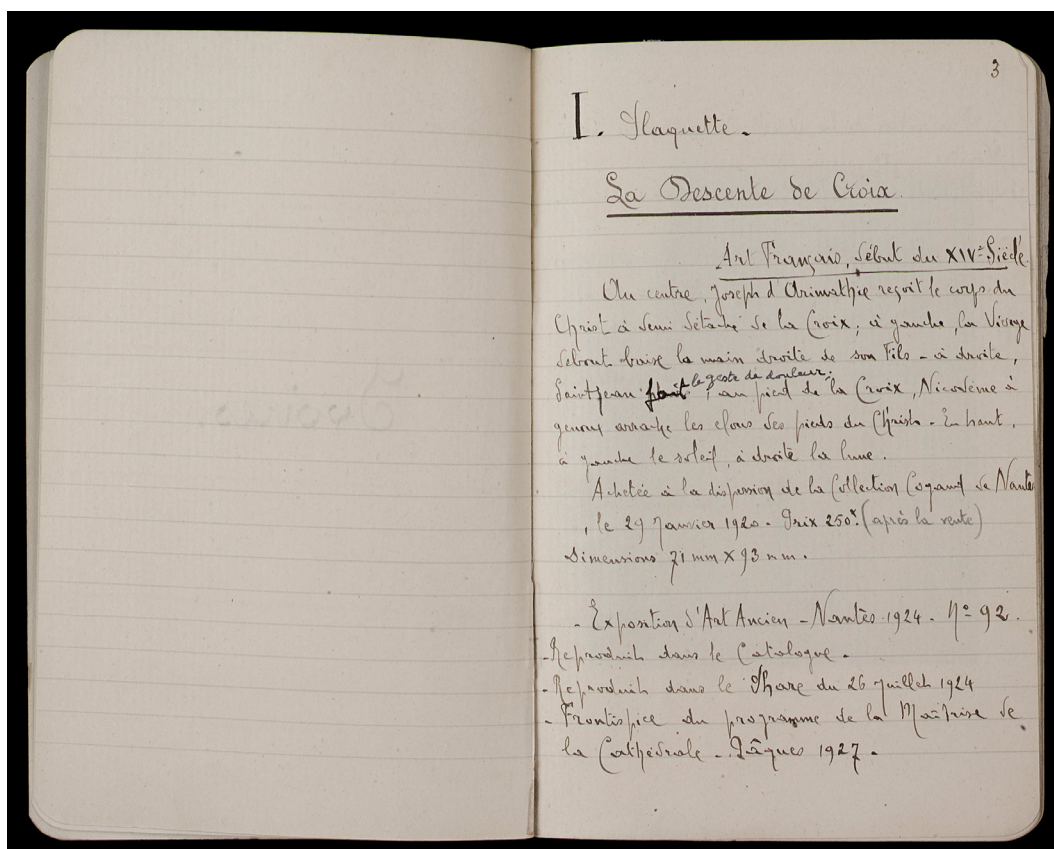 3
I. Plaquette.
La Descente de Croix.
Art Français, début du XIVe Siècle.
Au centre, Joseph d'Arimathie reçoit le corps du
Christ à demi détaché de la Croix ; à gauche, la Vierge
debout baise la main droite de son Fils - à droite,
Saint Jean fait le geste de douleur ; au pied de la Croix, Nicodème à
genoux arrache les clous des pieds du Christ. En haut,
à gauche le soleil, à droite la lune.
Achetée à la dispersion de la Collection Cogand de Nantes
, le 29 Janvier 1920. Prix 250f. (après la vente)
Dimensions 71 mm X 93 mm.
- Exposition d'Art Ancien - Nantes 1924. No 92.
- Reproduit dans le Catalogue.
- Reproduit dans le Phare du 26 Juillet 1924
- Frontispice du programme de la Maîtrise de
la Cathédrale - Pâques 1927.